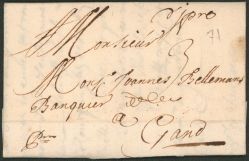 d'ypre
A Monsieur
71
3
Monsr Joannes Bellemans
Banquier
a
Gand